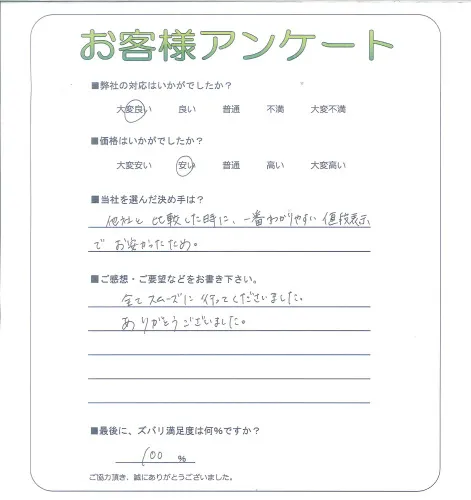 お客様アンケート
■弊社の対応はいかがでしたか?
大変良い 良い 普通 不満 大変不満
■価格はいかがでしたか?
大変安い 安い 普通 高い 大変高い
■当社を選んだ決め手は?
他社と比較した時に、一番わかりやすい値段表示
でお安かったため。
■ご感想・ご要望などをお書き下さい。
全てスムーズに行ってくださいました。
ありがとうございました。
■最後に、ズバリ満足度は何%ですか?
100 %
ご協力頂き、誠にありがとうございました。